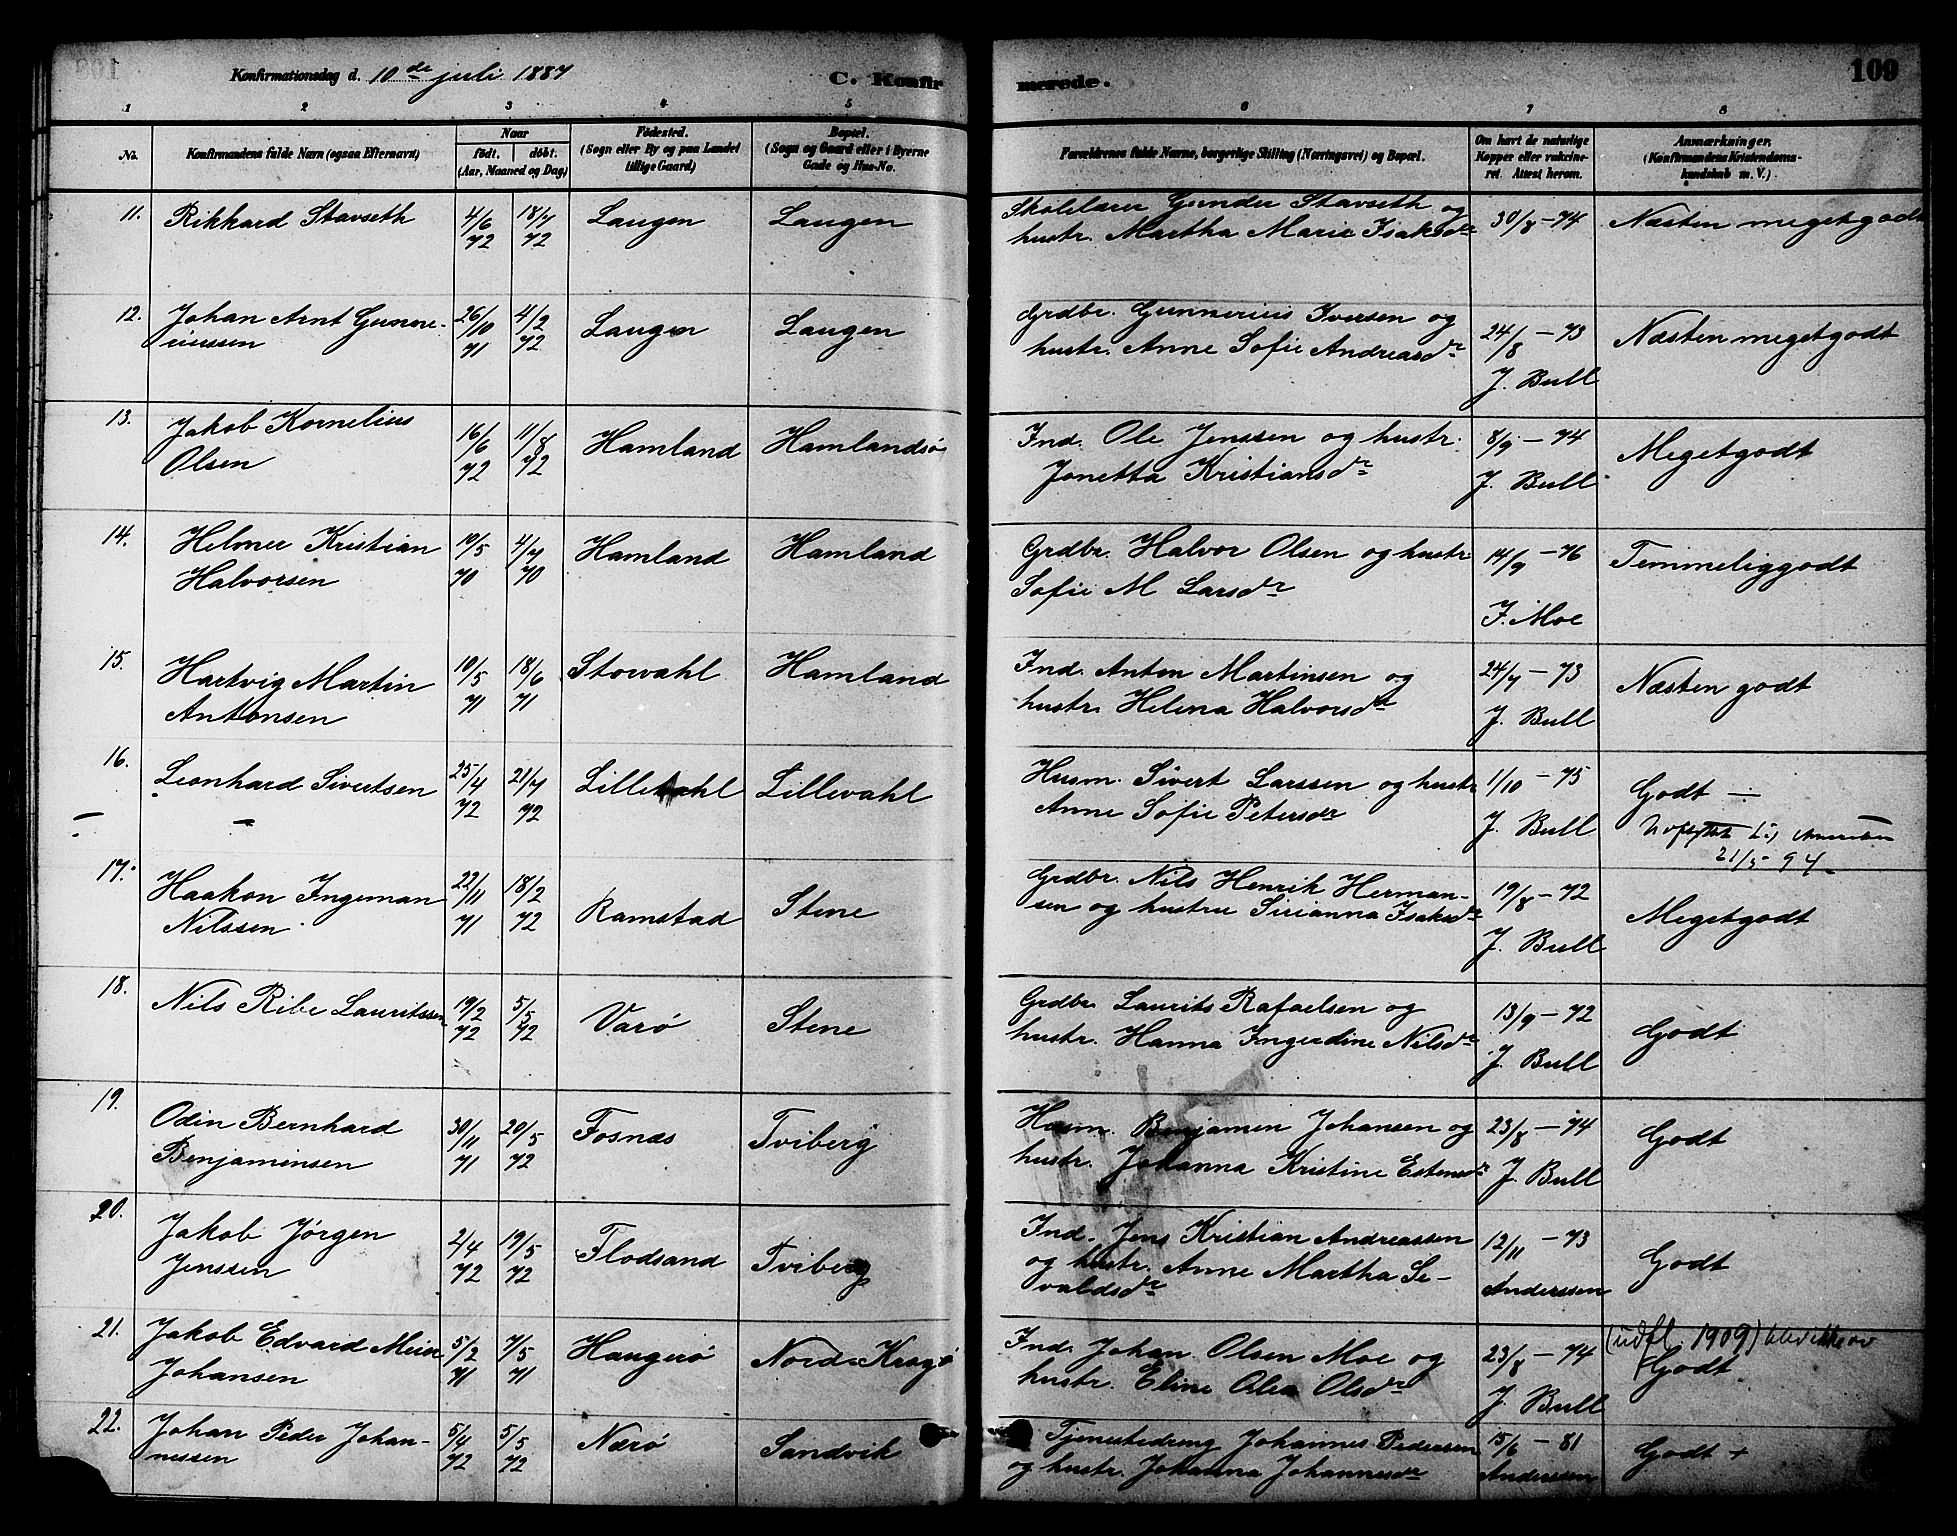 Konfirmationsdag d. 10de juli 1887
C. Konfirmerede.
109
1 2 3 4 5 6 7 8
No.
Konfirmandens fulde Navn (ogsaa Efternavn)
Naar
født. døbt.
(Aar, Maaned og Dag)
Fødested.
(Sogn eller By og paa Landet
tillige Gaard)
Bopæl.
(Sogn og Gaard eller i Byerne
Gade og Hus-No.
Forældrenes fulde Navne, borgerlige Stilling (Næringsvei) og Bopæl.
Om havt de naturlige
Kopper eller vakcine-
ret. Attest herom.
Anmærkninger.
(Konfirmandens Kristendoms-
kundskab m. V.)
11. Rikkard Stavseth 4/6 72 18/7 72 Laugen Laugen Skolelærer Gunder Stavseth og
hustr. Martha Marie Isaksdr 30/8 - 74 Næsten megetgodt
12. Johan Arnt Gunne-
riussen 26/10 71 4/2 72 Laugen Laugen Grdbr. Gunnerius Iversen og
hustr. Anne Sofie Andreasdr 24/8 - 73 J. Bull Næsten megetgodt
13. Jakob Kornelius
Olsen 16/6 72 11/8 72 Hamland Hamlandsø Ind. Ole Jenssen og hustr.
Jonetta Kristiansdr 8/9 - 74 J. Bull Megetgodt
14. Helmer Kristian
Halvorsen 19/5 70 4/7 70 Hamland Hamland Grdbr. Halvor Olsen og hustr
Sofie M Larsdr 14/9 - 76 J. Moe Temmeliggodt
15. Hartvig Martin
Antonsen 19/5 71 18/6 71 Storvahl Hamland Ind. Anton Martinsen og
hustr. Helena Halvorsdr 24/7 - 73 J. Bull Næsten godt
16. Leonhard Sivertsen 25/4 72 21/7 72 Lillevahl Lillevahl Husm. Sivert Larssen og hustr
Anne Sofie Petersdr 1/10 - 75 J. Bull Godt -
Udflyttet til Amerika
21/5 - 94
17. Haakon Ingeman
Nilssen 22/11 71 18/2 72 Ramstad Stene Grdbr. Nils Henrik Herman-
sen og hustru Sirianna Isaksdr 19/8 - 72 J. Bull Megetgodt
18. Nils Ribe Lauritssen 19/2 72 5/5 72 Varø Stene Grdbr. Laurits Rafaelsen og
hustr. Hanna Ingerdine Nilsdr 13/9 - 72 J. Bull Godt
19. Odin Bernhard
Benjaminsen 30/11 71 20/5 72 Fosnæs Tviberg Husm. Benjamin Johansen og
hustr. Johanna Kristine Estensdr 23/8 - 74 J. Bull Godt
20. Jakob Jørgen
Jenssen 2/4 72 19/5 72 Flodsand Tviberg Ind. Jens Kristian Andreassen
og hustr. Anne Martha Si-
valdsdr 12/11 - 73 Anderssen Godt
21. Jakob Edvard Meier
Johansen 5/2 71 7/5 71 Haugerø Nord-Kragø Ind. Johan Olsen Moe og
hustr. Eline Olea Olsdr 23/8 - 74 J. Bull (udfl. 1909)
Godt
22. Johan Peder Johan-
nessen 5/4 72 5/5 72 Nærø Sandvik Tjenestedreng Johannes Pedersen
og hustr. Johanna Johannesdr 15/6 - 81 Anderssen Godt +